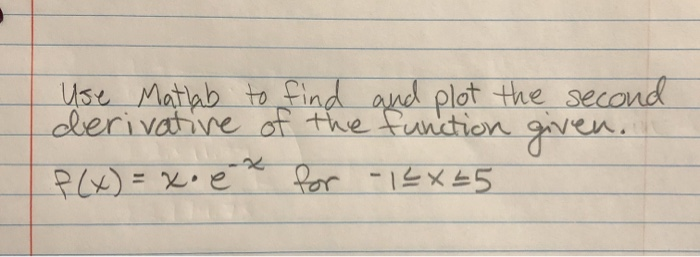 Use Matlab to find and plot the second
derivative of the function given.
f(x) = x · e^-x for -1 ≤ x ≤ 5